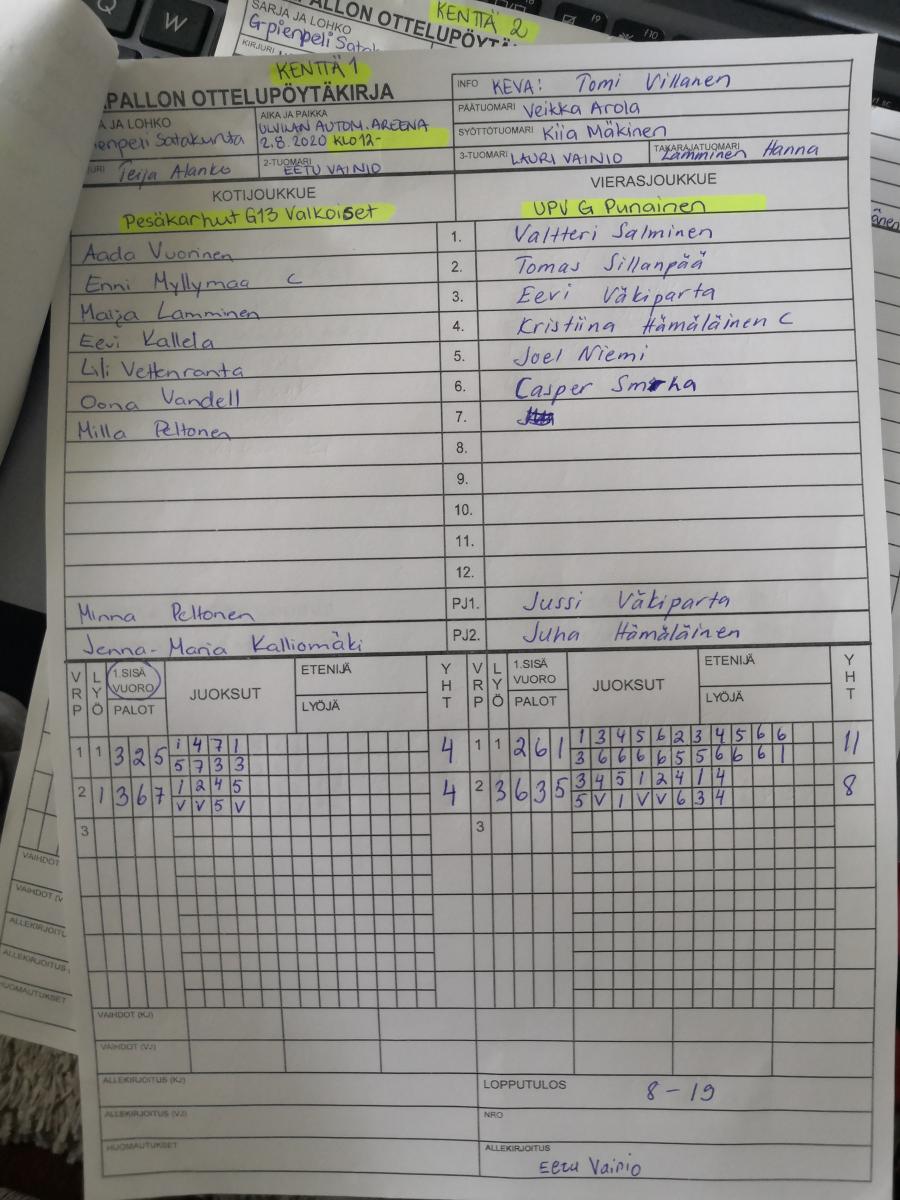 KENTTÄ 2
PALLON OTTELUPÖYTÄ
SARJA JA LOHKO
G-pienpeli Satak
KIRJURI
KENTTÄ 1
PALLON OTTELUPÖYTÄKIRJA
INFO KEVA: Tomi Villanen
PÄÄTUOMARI Veikka Arola
A JA LOHKO
ienpeli Satakunta
AIKA JA PAIKKA
ULVILAN AUTOM. AREENA
2.8.2020 KLO 12-
SYÖTTÖTUOMARI Kiia Mäkinen
URI Teija Alanko
2-TUOMARI EETU VAINIO
3-TUOMARI LAURI VAINIO
TAKARAJATUOMARI Lamminen Hanna
KOTIJOUKKUE
VIERASJOUKKUE
Pesäkarhut G13 Valkoiset
UPV G Punainen
Aada Vuorinen 1. Valtteri Salminen
Enni Myllymaa C 2. Tomas Sillanpää
Maija Lamminen 3. Eevi Väkiparta
Eevi Kallela 4. Kristiina Hämäläinen C
Lili Vettenranta 5. Joel Niemi
Oona Vandell 6. Casper
Milla Peltonen 7.
8.
9.
10.
11.
12.
Minna Peltonen PJ1. Jussi Väkiparta
Jenna-Maria Kalliomäki PJ2. Juha Hämäläinen
VRP LYÖ 1.SISÄ VUORO PALOT JUOKSUT ETENIJÄ LYÖJÄ YHT VRP LYÖ 1.SISÄ VUORO PALOT JUOKSUT ETENIJÄ LYÖJÄ YHT
1 1 3 2 5 1 4 7 1 4 1 1 2 6 1 1 3 4 5 6 2 3 4 5 6 6 11
5 7 3 3 3 6 6 6 6 5 5 6 6 6 1
2 1 3 6 7 1 2 4 5 4 2 3 6 3 5 3 4 5 1 2 4 1 4 8
V V 5 V 5 V 1 V V 6 3 4
3 3
VAIHDOT (KJ)
VAIHDOT (VJ)
ALLEKIRJOITUS (KJ)
LOPPUTULOS 8-19
ALLEKIRJOITUS (VJ)
NRO
HUOMAUTUKSET
ALLEKIRJOITUS
Eetu Vainio
VAIHDOT
VAIHDOT (V
ALLEKIRJOITU
ALLEKIRJOITUS
HUOMAUTUKSET